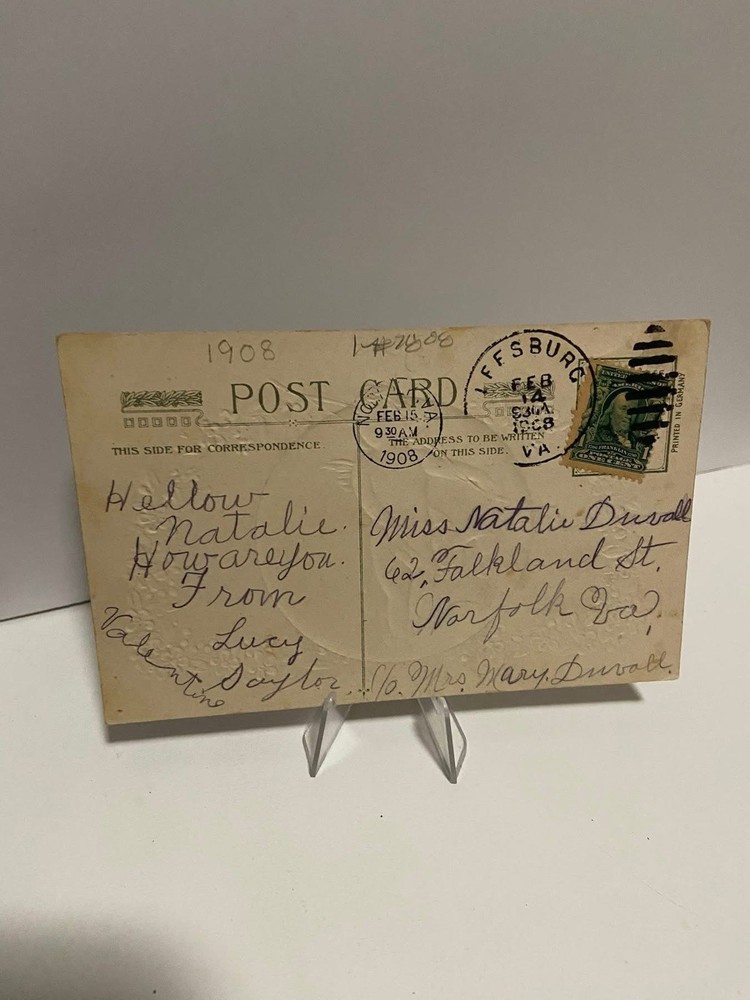 1908
POST CARD
THIS SIDE FOR CORRESPONDENCE
THE ADDRESS TO BE WRITTEN
ON THIS SIDE.
FEB 15
9 30 AM
1908
EESBURG
FEB
14
930A
1908
VA.
FRANKLIN
POSTAGE
ONE CENT
PRINTED IN GERMANY
Hellow
Natalie.
How are you.
From
Lucy
Saylor.
Valentine
Miss Natalie Duvall
62, Falkland St,
Norfolk Va,
c/o. Mrs. Mary. Duvall.